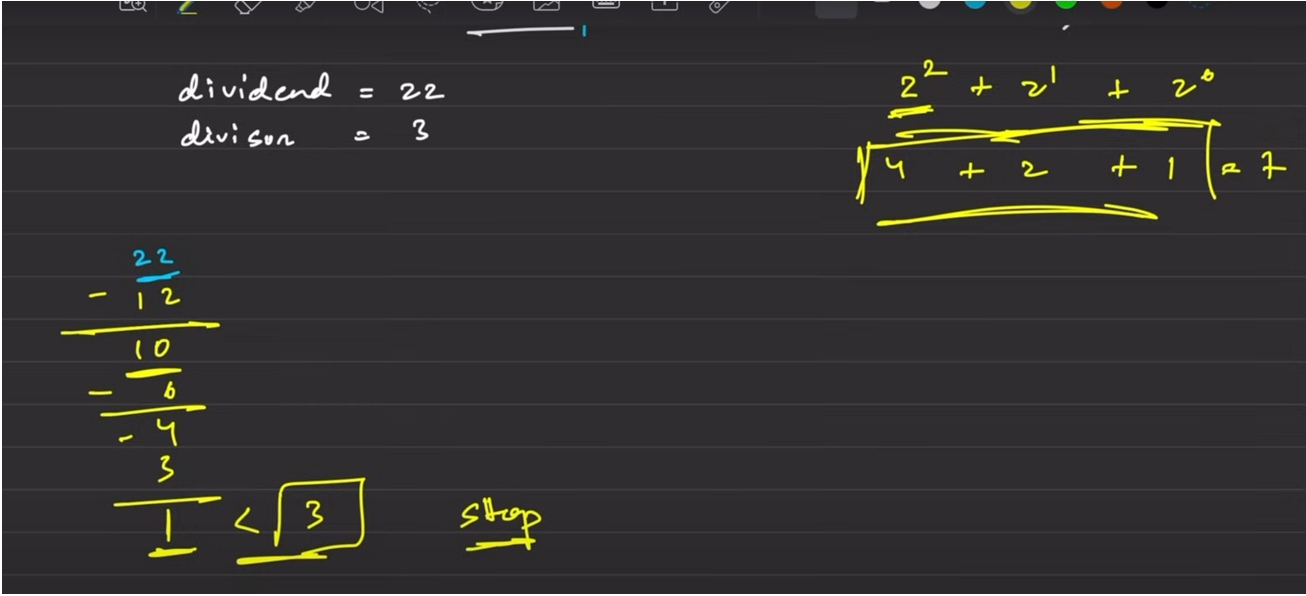 dividend = 22
divison = 3
2² + 2¹ + 2⁰
4 + 2 + 1 = 7
22
- 12
10
- 6
- 4
3
1 < 3
stop